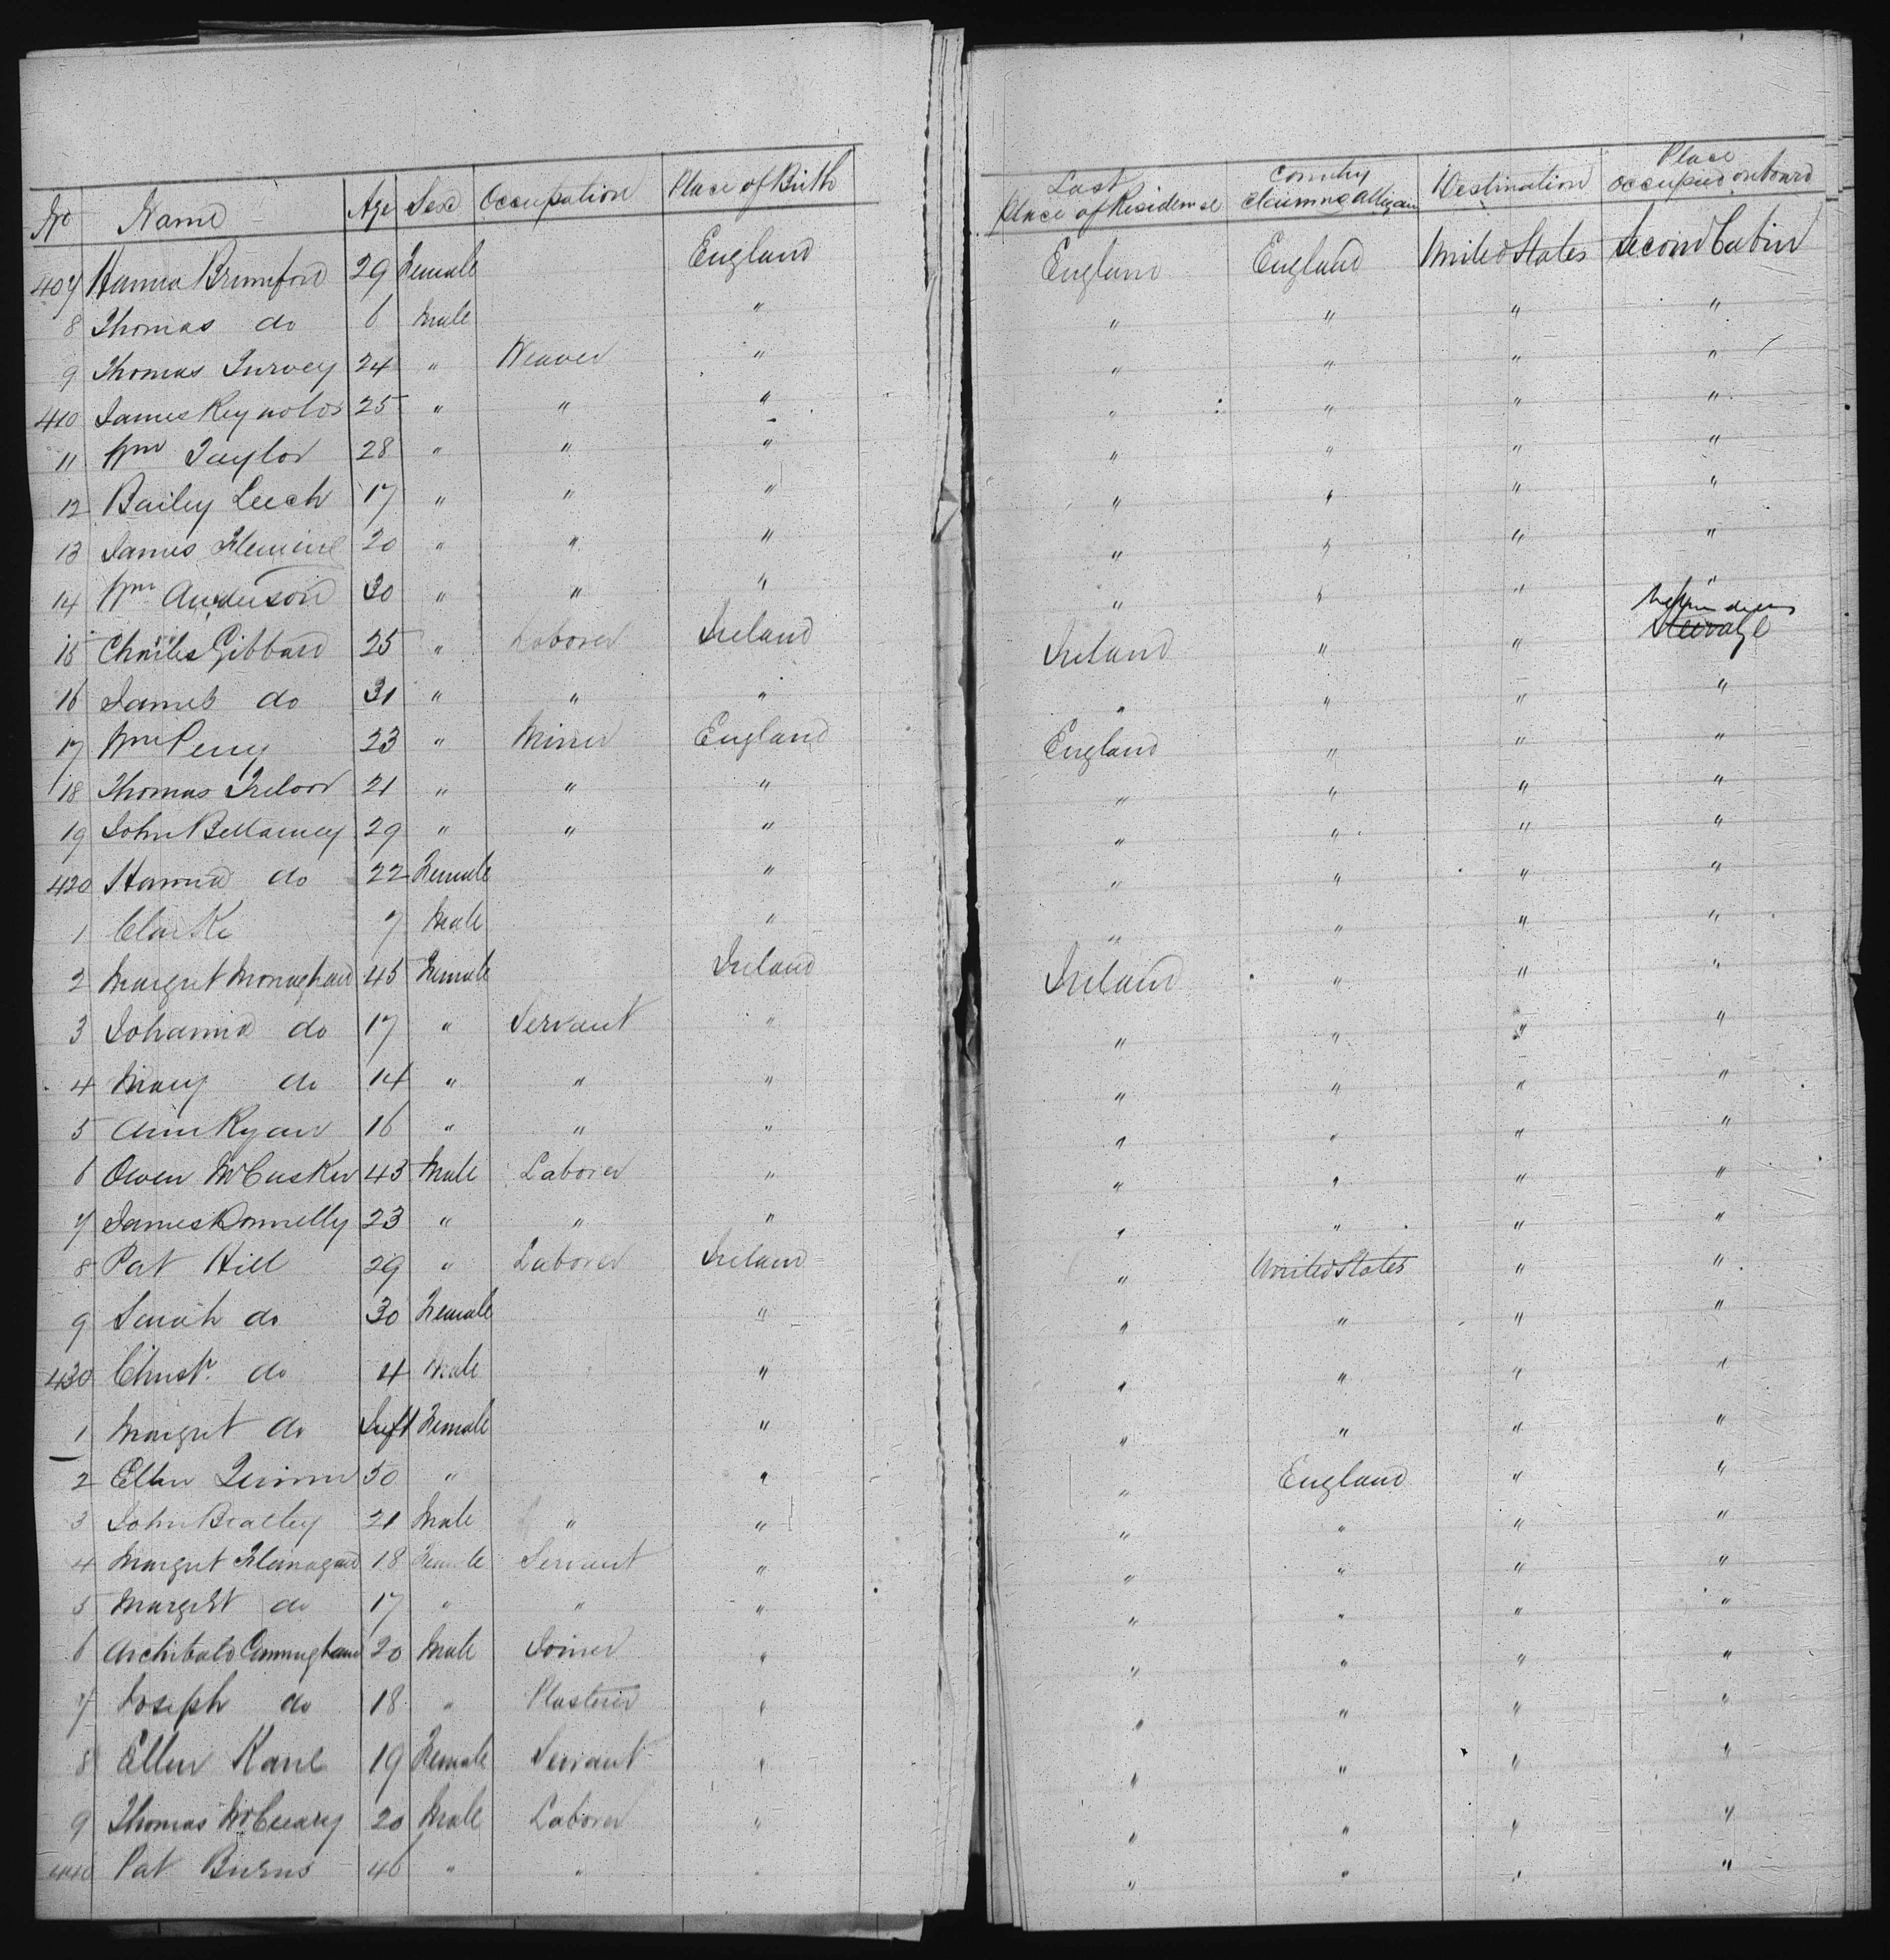 No Name Age Sex Occupation Place of Birth Last Place of Residence Country claiming allegian Destination Place occupied onboard
407 Hanna Brumford 29 Female England England England United States Second Cabin
8 Thomas do 6 Male " " " " "
9 Thomas Turvey 24 " Weaver " " " " "
410 James Reynolds 25 " " " " " " "
11 Wm Taylor 28 " " " " " " "
12 Bailey Leech 17 " " " " " " "
13 James 20 " " " " " " "
14 Wm Anderson 30 " " " " " " "
15 Charles Gibbard 25 " Laborer Ireland Ireland " " Steerage
16 James do 31 " " " " " " "
17 Wm Perry 23 " Miner England England " " "
18 Thomas Treloar 21 " " " " " " "
19 John Bellamey 29 " " " " " " "
420 Hanna do 22 Female " " " " "
1 Clark 7 Male " " " " "
2 Margret Monaghan 45 Female Ireland Ireland " " "
3 Johanna do 17 " Servant " " " " "
4 Mary do 14 " " " " " " "
5 Ann Ryan 16 " " " " " " "
6 Owen McCusker 43 Male Laborer " " " " "
7 James Donnelly 23 " " " " " " "
8 Pat Hill 29 " Laborer Ireland " United States " "
9 Sarah do 30 Female " " " " "
430 Christr do 4 Male " " " " "
1 Margret do Inft Female " " " " "
2 Ellen 50 " " " England " "
3 John 21 Male " " " " " "
4 Margret Flanagan 18 Female Servant " " " " "
5 Margret do 17 " " " " " " "
6 Archibald Cunningham 20 Male Joiner " " " " "
7 Joseph do 18 " Plasterer " " " " "
8 Ellen Kane 19 Female Servant " " " " "
9 Thomas McCreary 20 Male Laborer " " " " "
440 Pat Burns 46 " " " " " " "